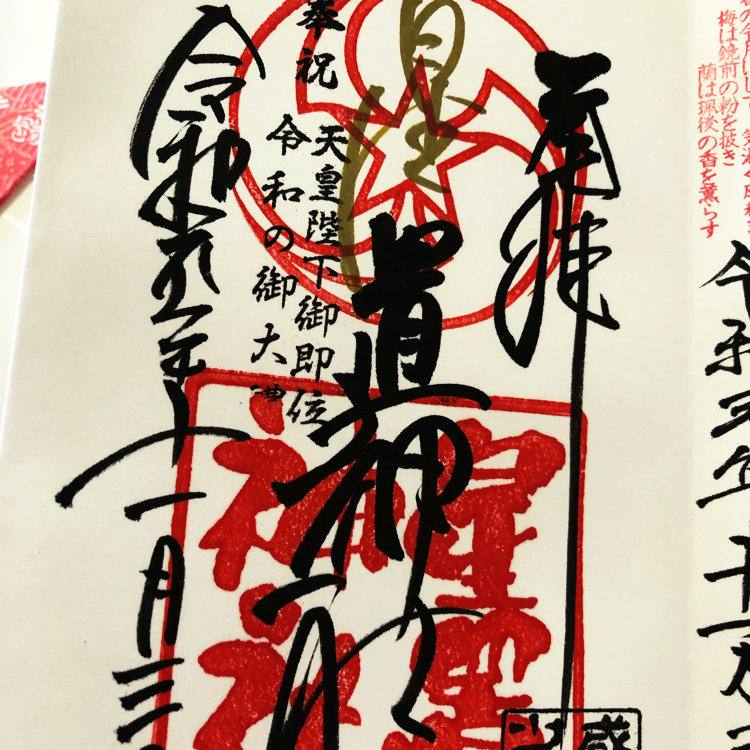 梅は鏡前の粉を披き
蘭は珮後の香を薫らす
令和三年十一月
奉拝
星置神社
奉祝
天皇陛下御即位
令和の御大禮
令和五年十一月三